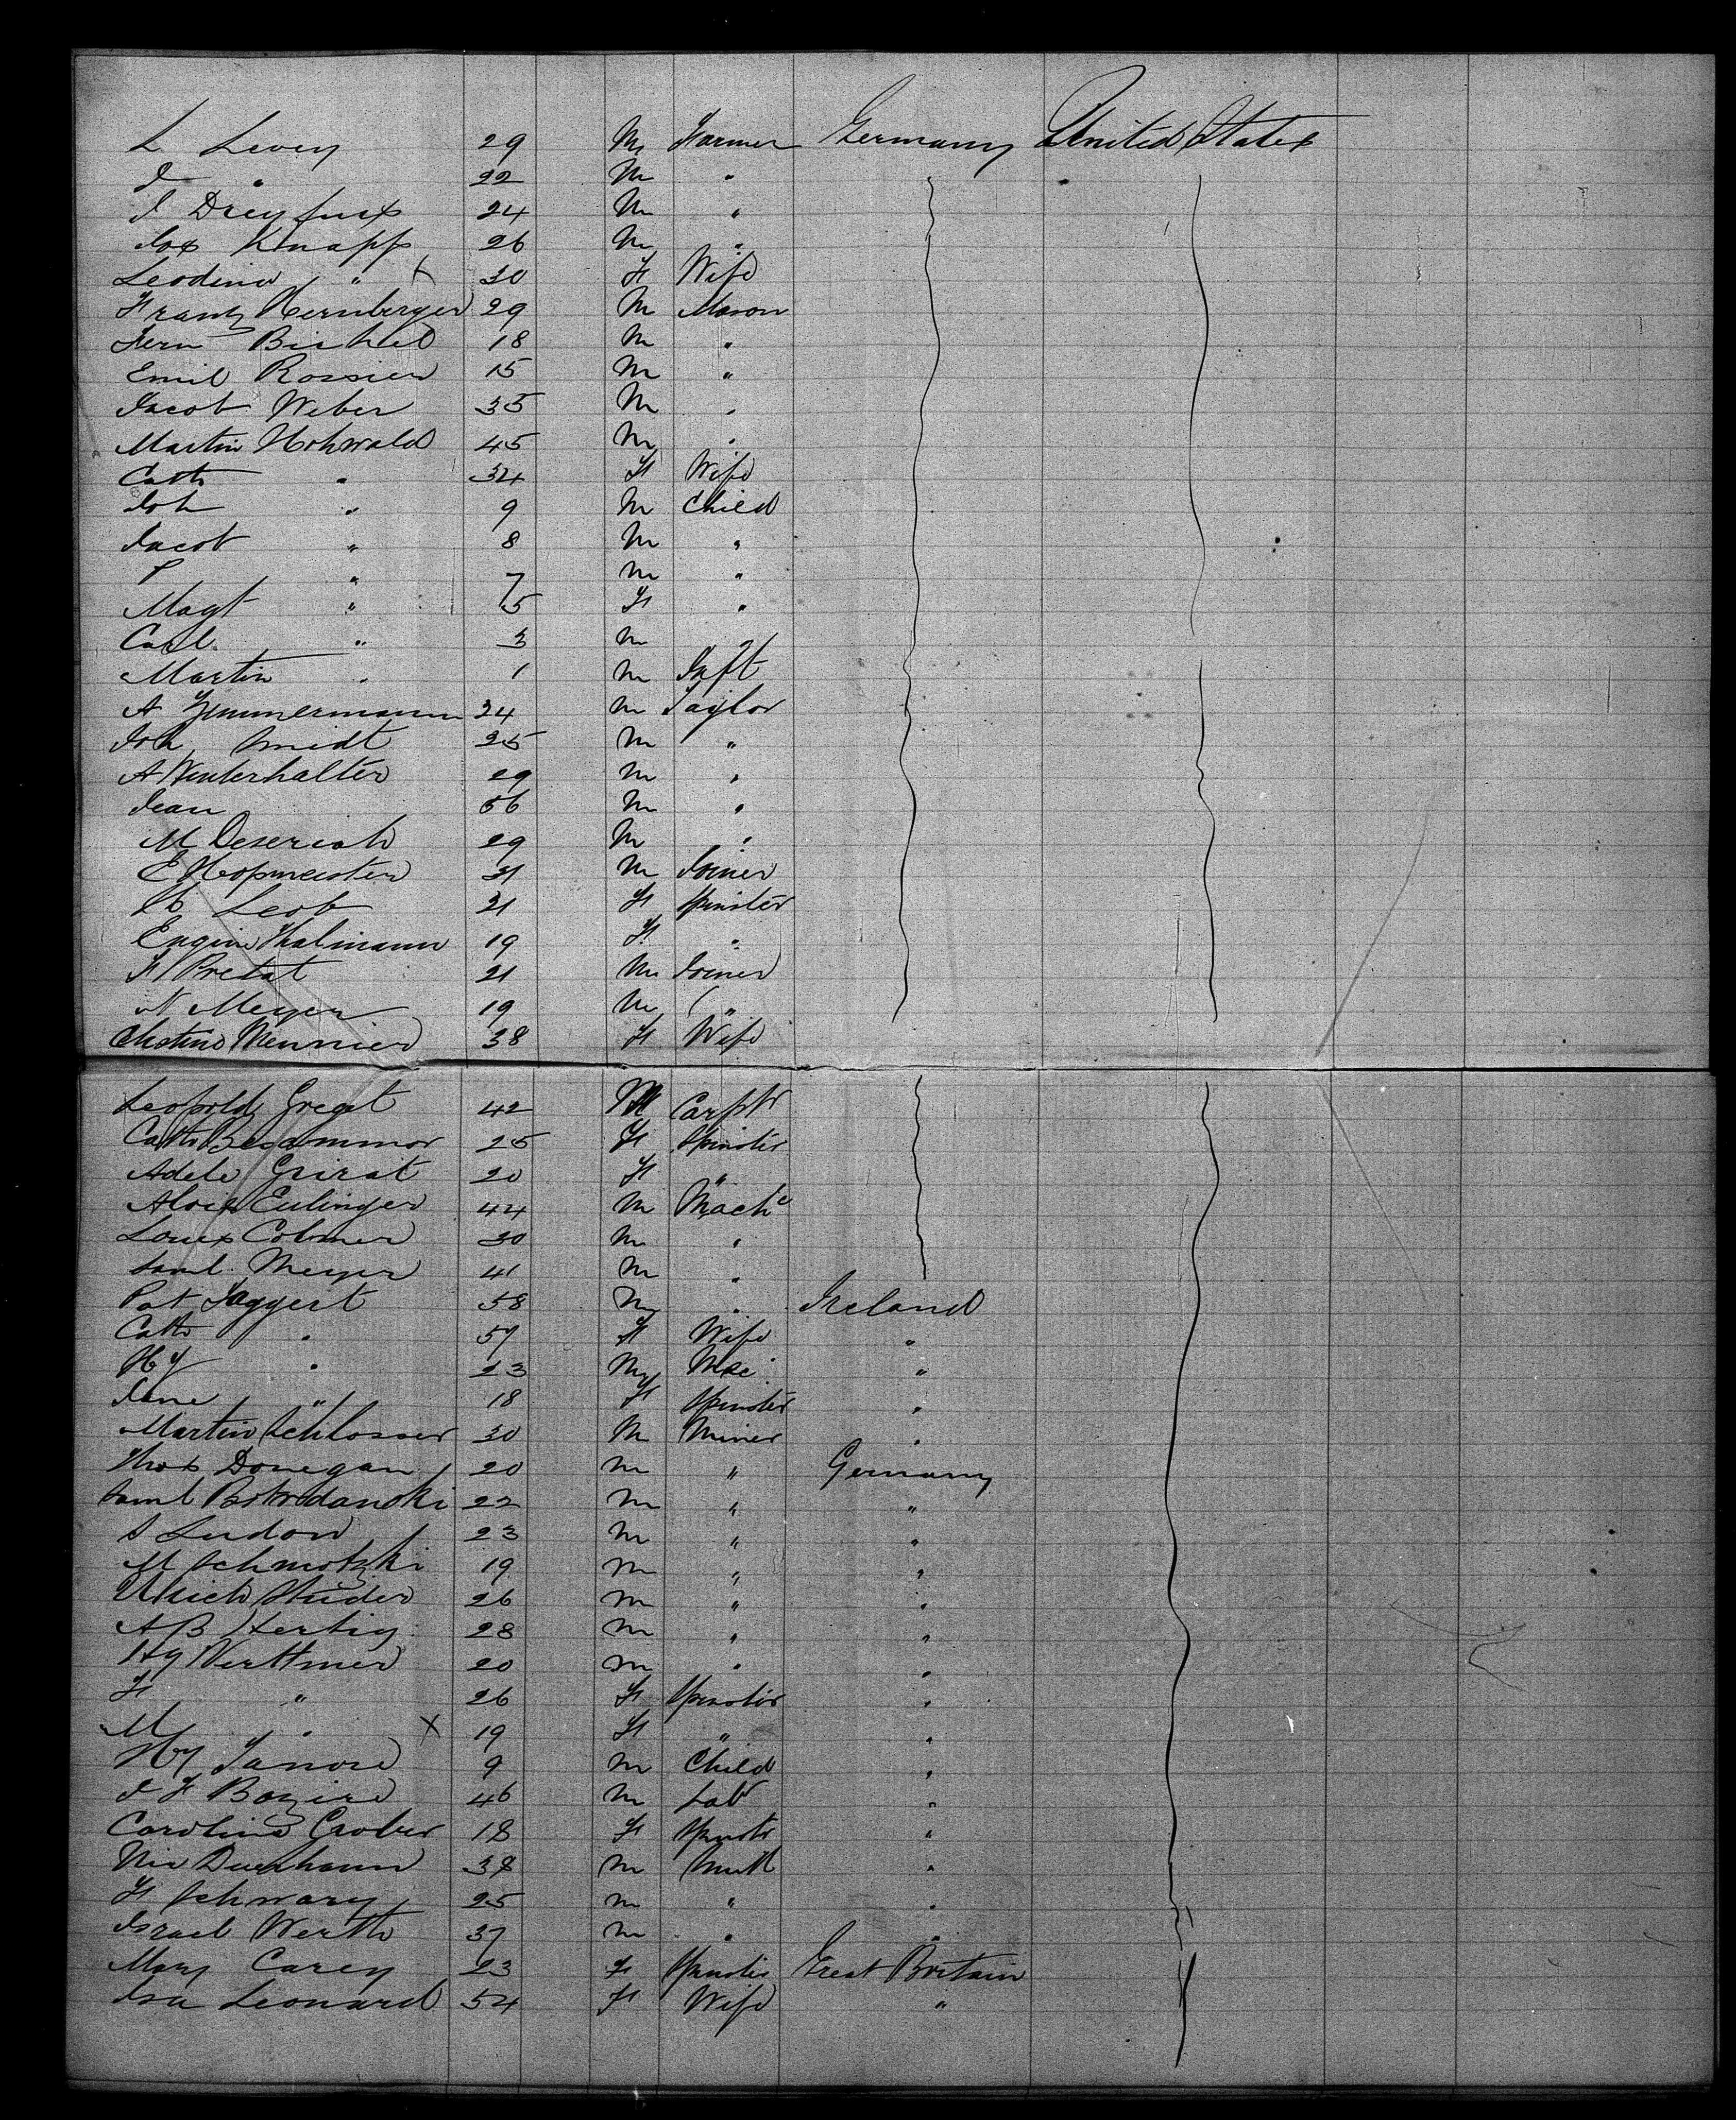 L Levey 29 M Farmer Germany United States
I " 22 M "
I Dreyfuss 24 M "
Jos Knapp 26 M "
Leodine " X 30 F Wife
Frantz Hernberger 29 M Mason
Fern Bichel 18 M "
Emil Rossier 15 M "
Jacob Weber 35 M "
Martin Hohwald 45 M "
Cath " 34 F Wife
Joh " 9 M Child
Jacob " 8 M "
P " 7 M "
Magt " 5 F "
Carl " 3 M "
Martin " 1 M Inft
A Zimmermann 24 M Taylor
Joh Smidt 25 M "
A Winterhalter 29 M "
Jean 56 M "
M Deseriah 29 M "
E Hopmeister 31 M Joiner
Leob 21 F Spinster
Eugine Thalmann 19 F "
F Pretat 21 M Joiner
N Meyer 19 M "
Meunier 38 F Wife
Leopold Gregt 42 M Carptr
Cath Besammor 25 F Spinster
Adele Girat 20 F "
Alois Eulinger 44 M Mache
Louis Colmer 30 M "
Saml. Meyer 41 M "
Pat Taggert 58 M " Ireland
Cath " 57 F Wife "
Hy " 23 M Mac "
Jane " 18 F Spinster "
Martin Schlosser 30 M Miner "
Thos Donegan 20 M " Germany
Saml 22 M " "
S Ludow 23 M " "
M Schmotzki 19 M " "
Ulrich Studer 26 M " "
A B Hertig 28 M " "
Hy Verttmer 20 M " "
F " 26 F Spinster "
M " X 19 F " "
Hy Janore 9 M Child "
J F Bozire 46 M Lab "
Caroline Grober 18 F Spinstr "
Nic Duerhann 38 M "
F Schwarz 25 M " "
Israel Werth 37 M " "
Mary Carey 23 F Spinster Great Britain
Isa Leonard 54 F Wife "